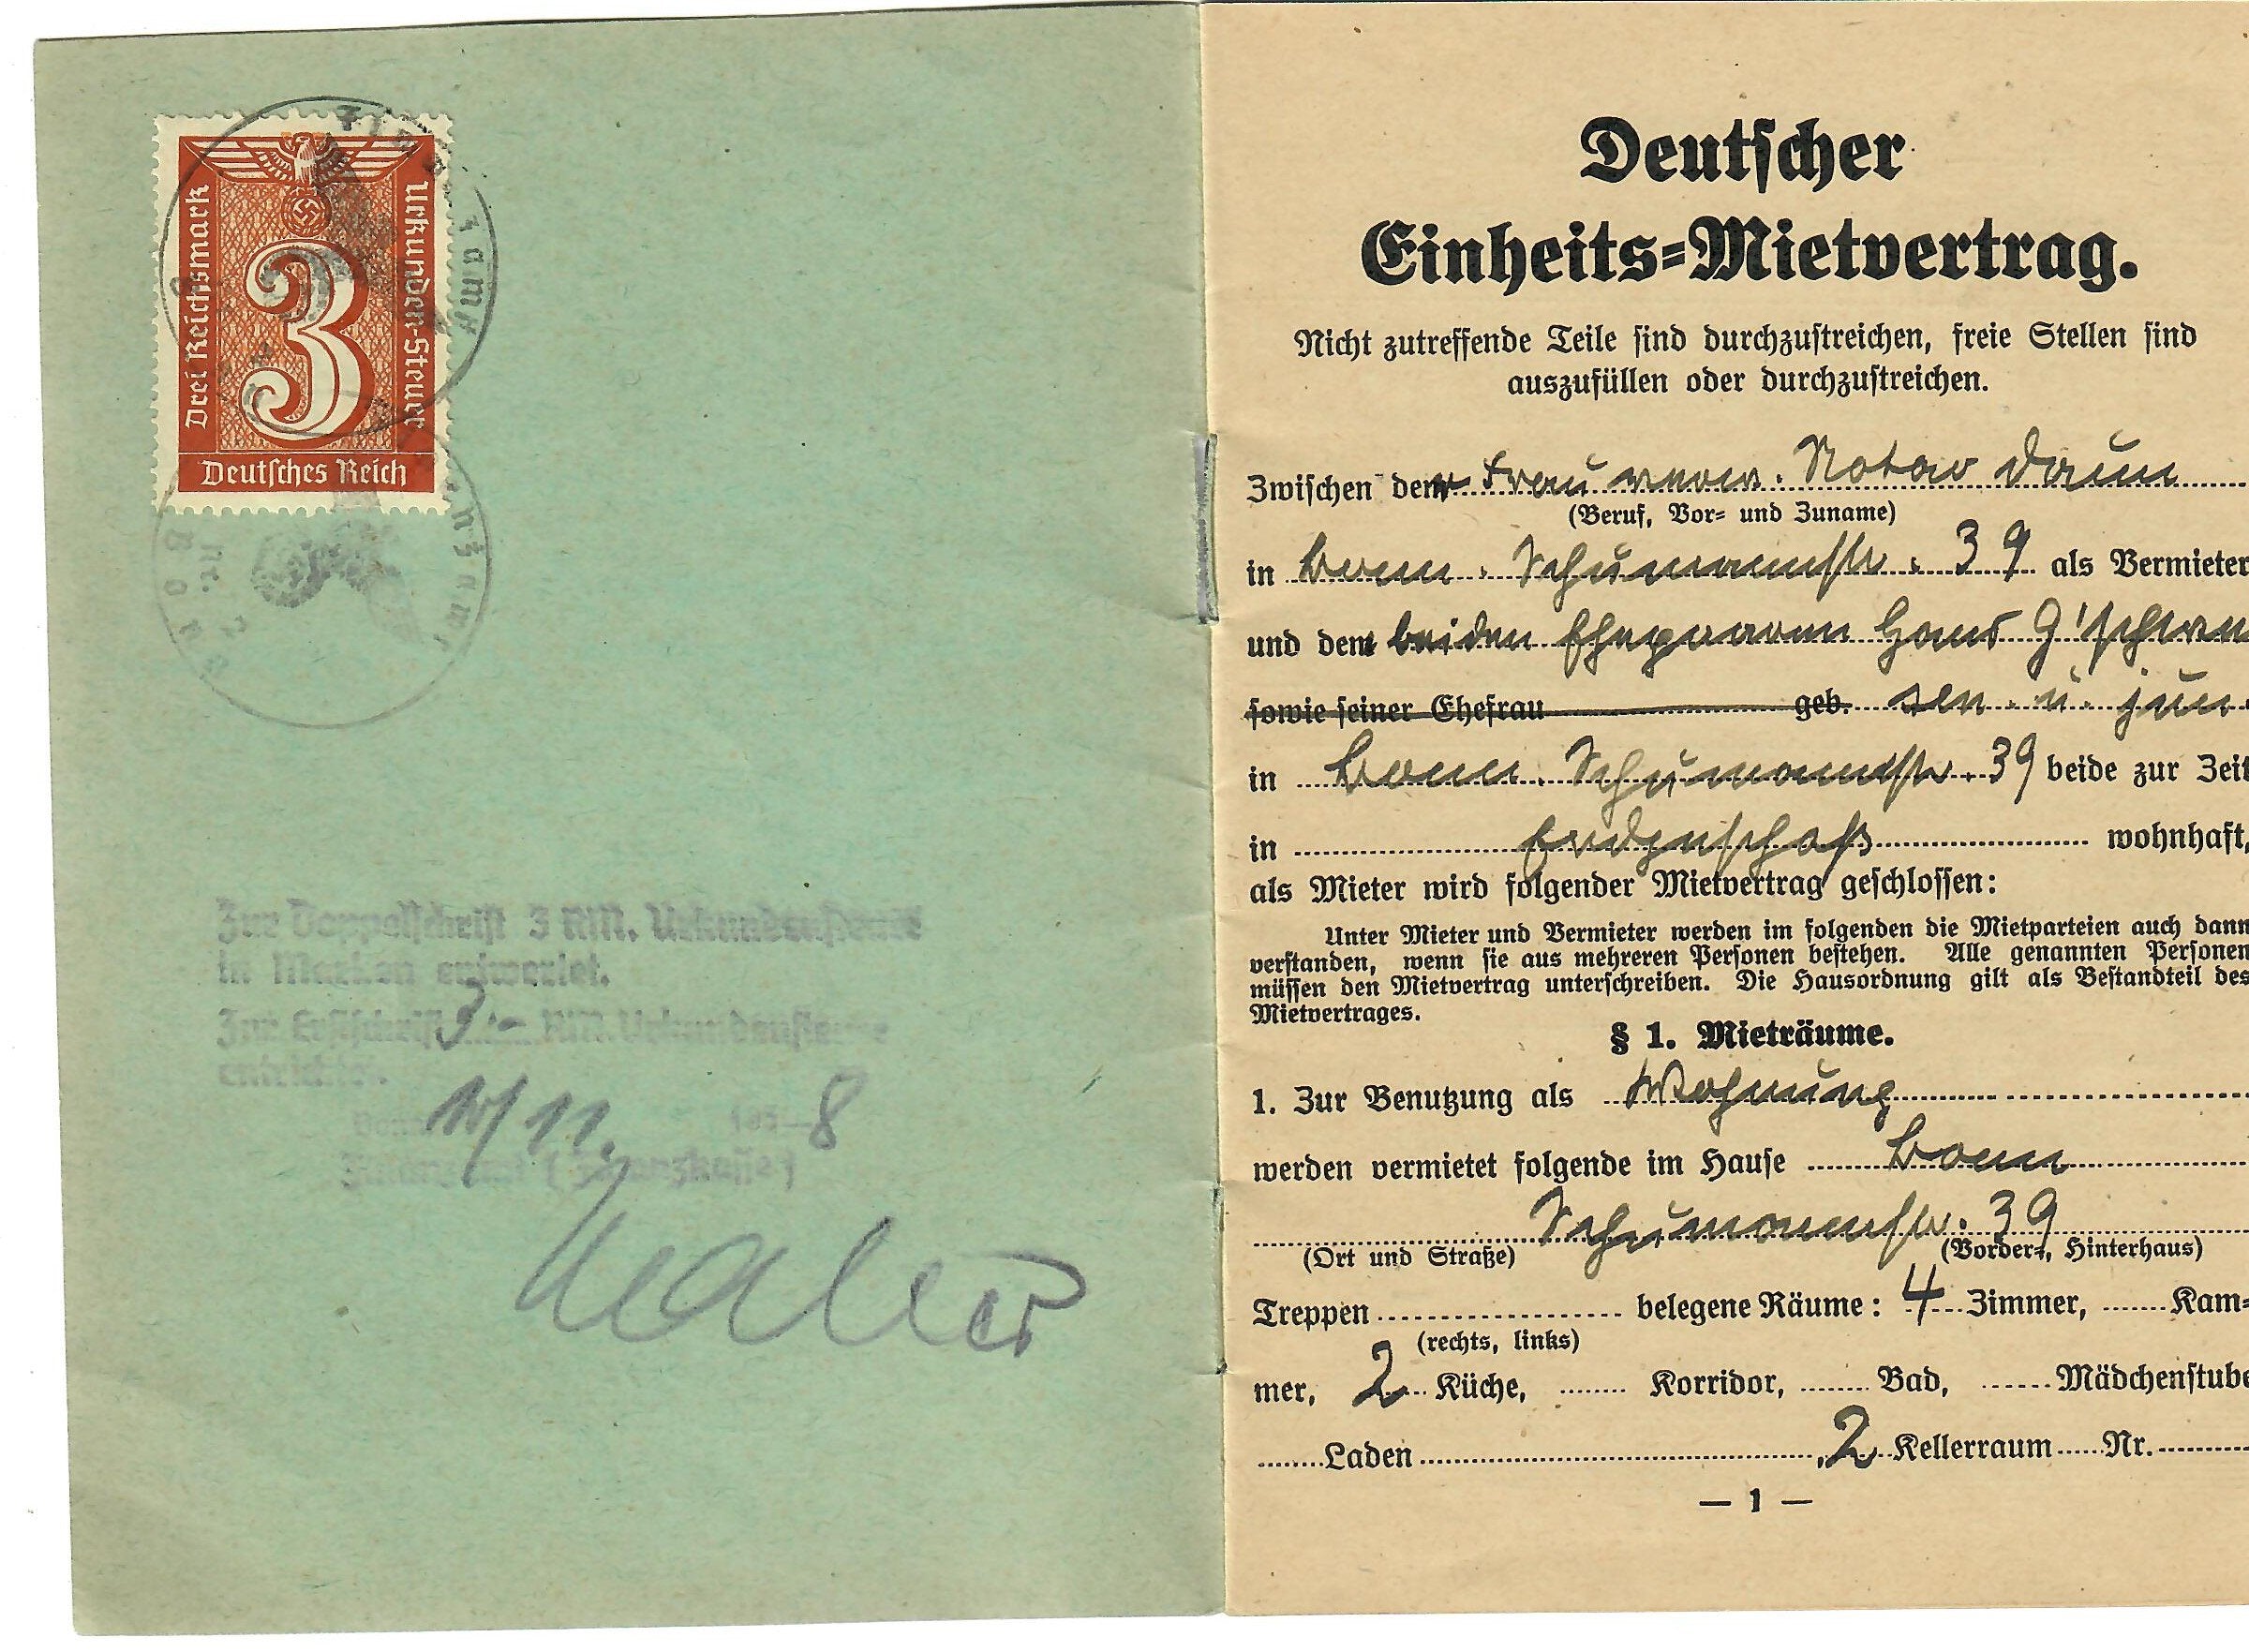 Drei Reichsmark
Urkunden-Steuer
3
Deutsches Reich
Finanzamt
Bonn
Zur Doppelschrift 3 RM. Urkundensteuer
in Marken entwertet.
Zur Erstschrift 3.- RM. Urkundensteuer
entrichtet.
Bonn 11. 193 8
Finanzamt (Finanzkasse)
Deutscher
Einheits=Mietvertrag.
Nicht zutreffende Teile sind durchzustreichen, freie Stellen sind
auszufüllen oder durchzustreichen.
Zwischen der Frau verw. Notar Daum
(Beruf, Vor= und Zuname)
in Bonn. Schumannstr. 39 als Vermieter
und den beiden Ehepaaren Hans
sowie seiner Ehefrau geb. sen. u. jun.
in Bonn. Schumannstr. 39 beide zur Zeit
in Erdgeschoß wohnhaft,
als Mieter wird folgender Mietvertrag geschlossen:
Unter Mieter und Vermieter werden im folgenden die Mietparteien auch dann
verstanden, wenn sie aus mehreren Personen bestehen. Alle genannten Personen
müssen den Mietvertrag unterschreiben. Die Hausordnung gilt als Bestandteil des
Mietvertrages.
§ 1. Mieträume.
1. Zur Benutzung als Wohnung
werden vermietet folgende im Hause Bonn
Schumannstr. 39
(Ort und Straße) (Vorder=, Hinterhaus)
Treppen belegene Räume: 4 Zimmer, Kam=
(rechts, links)
mer, 2 Küche, Korridor, Bad, Mädchenstube
Laden , 2 Kellerraum Nr.
— 1 —